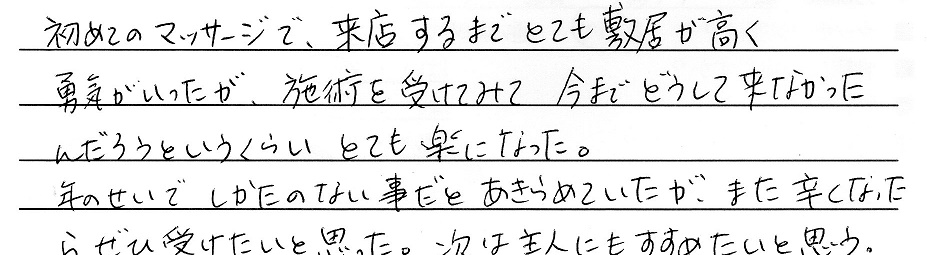 初めてのマッサージで、来店するまでとても敷居が高く
勇気がいったが、施術を受けてみて 今までどうして来なかった
んだろうというくらい とても楽になった。
年のせいで しかたのない事だと あきらめていたが、また辛くなった
らぜひ受けたいと思った。次は主人にもすすめたいと思う。